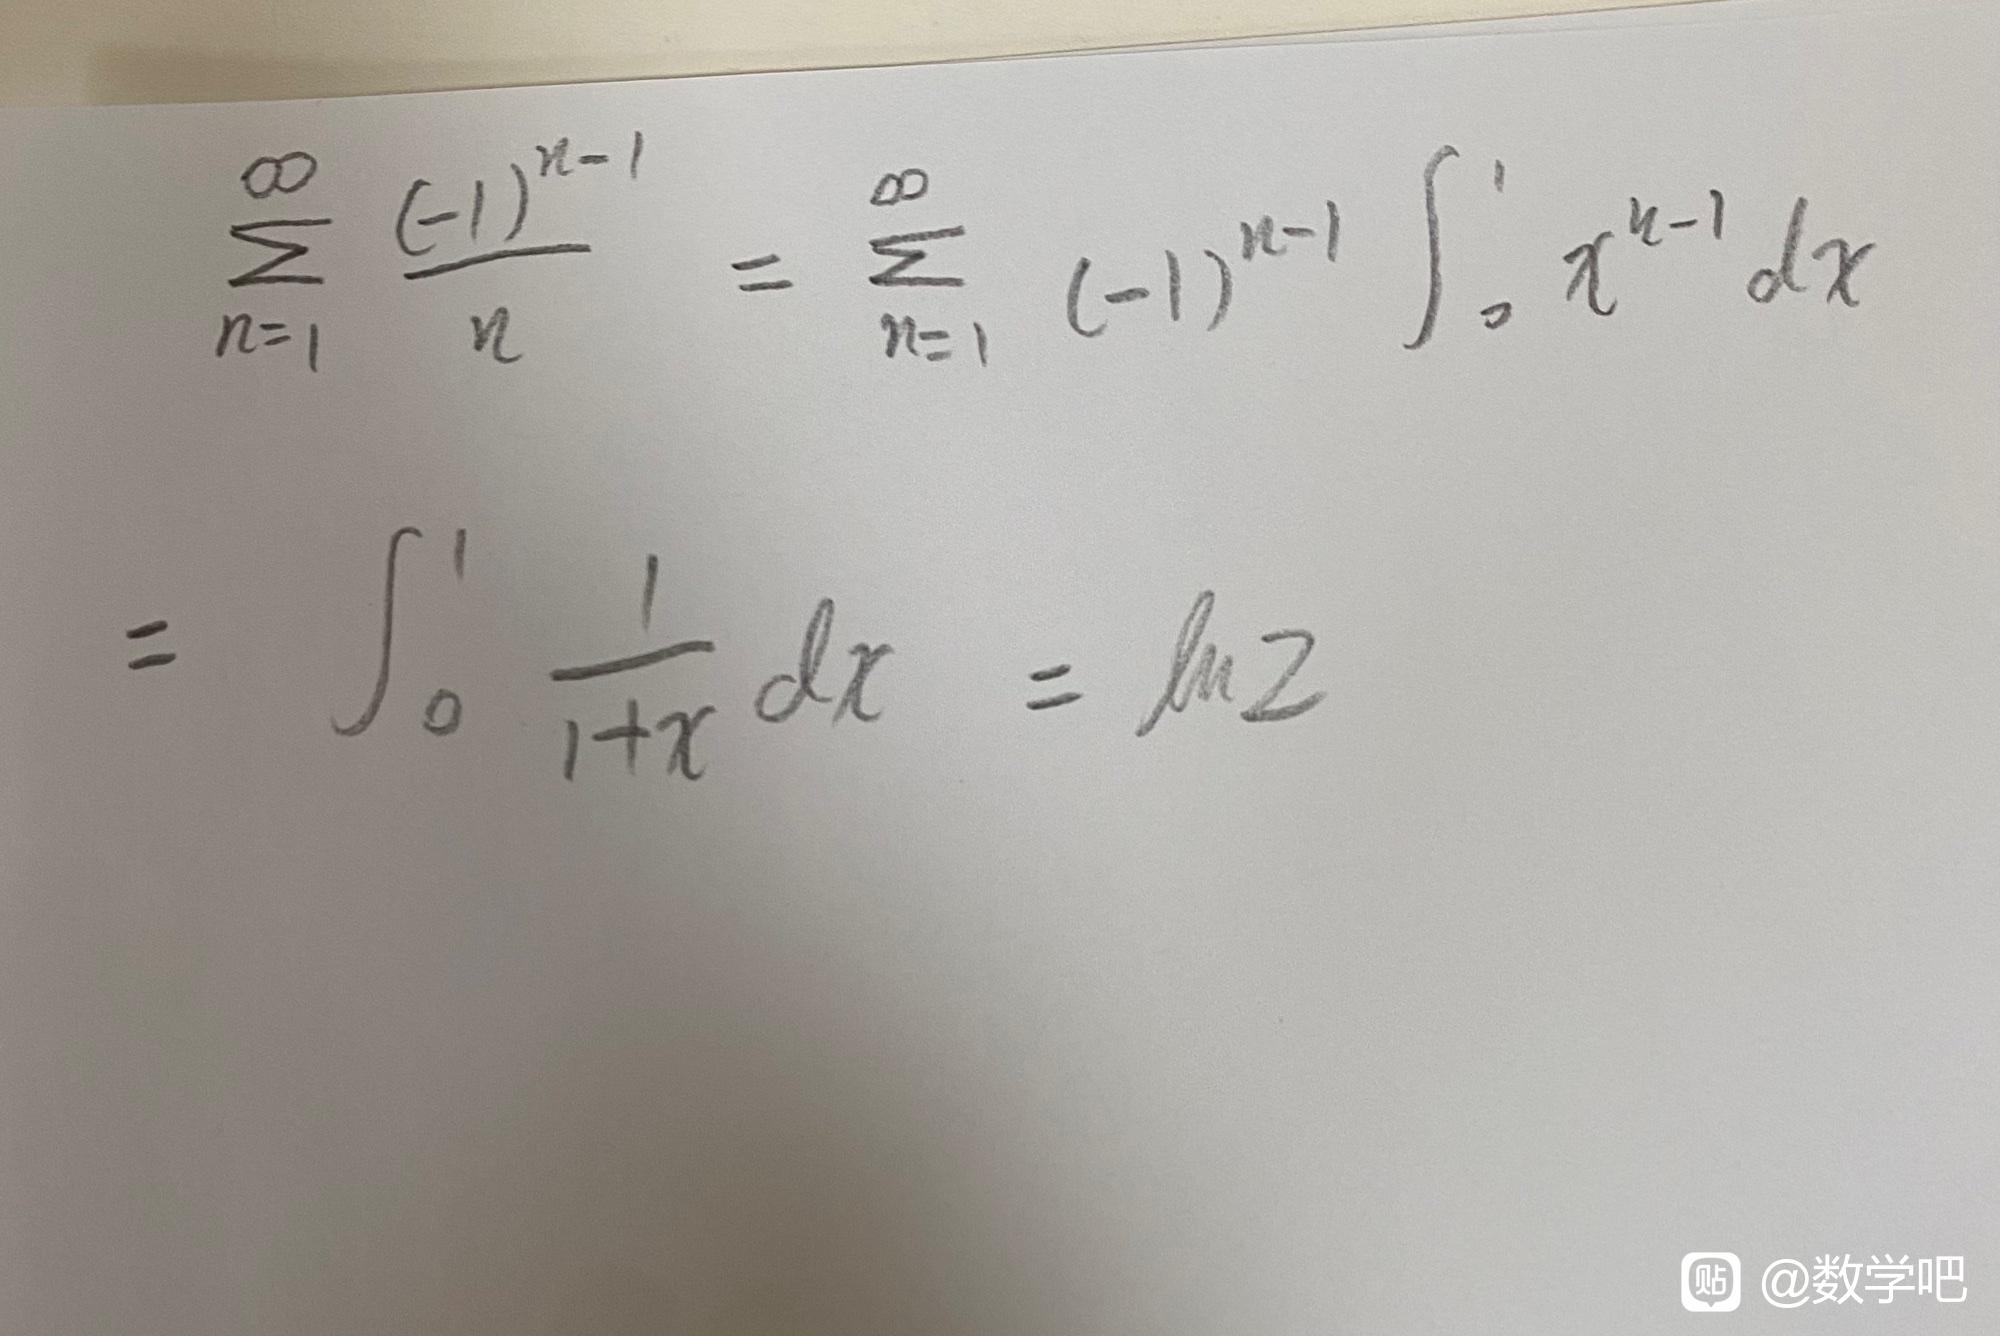 ∞ Σ n=1 (-1)^{n-1} / n = ∞ Σ n=1 (-1)^{n-1} ∫_0^1 x^{n-1} dx
= ∫_0^1 1/(1+x) dx = ln2
贴 @数学吧